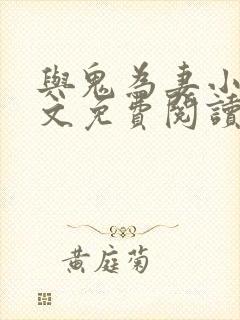 與鬼為妻小
文免費閱讀
黃庭菊